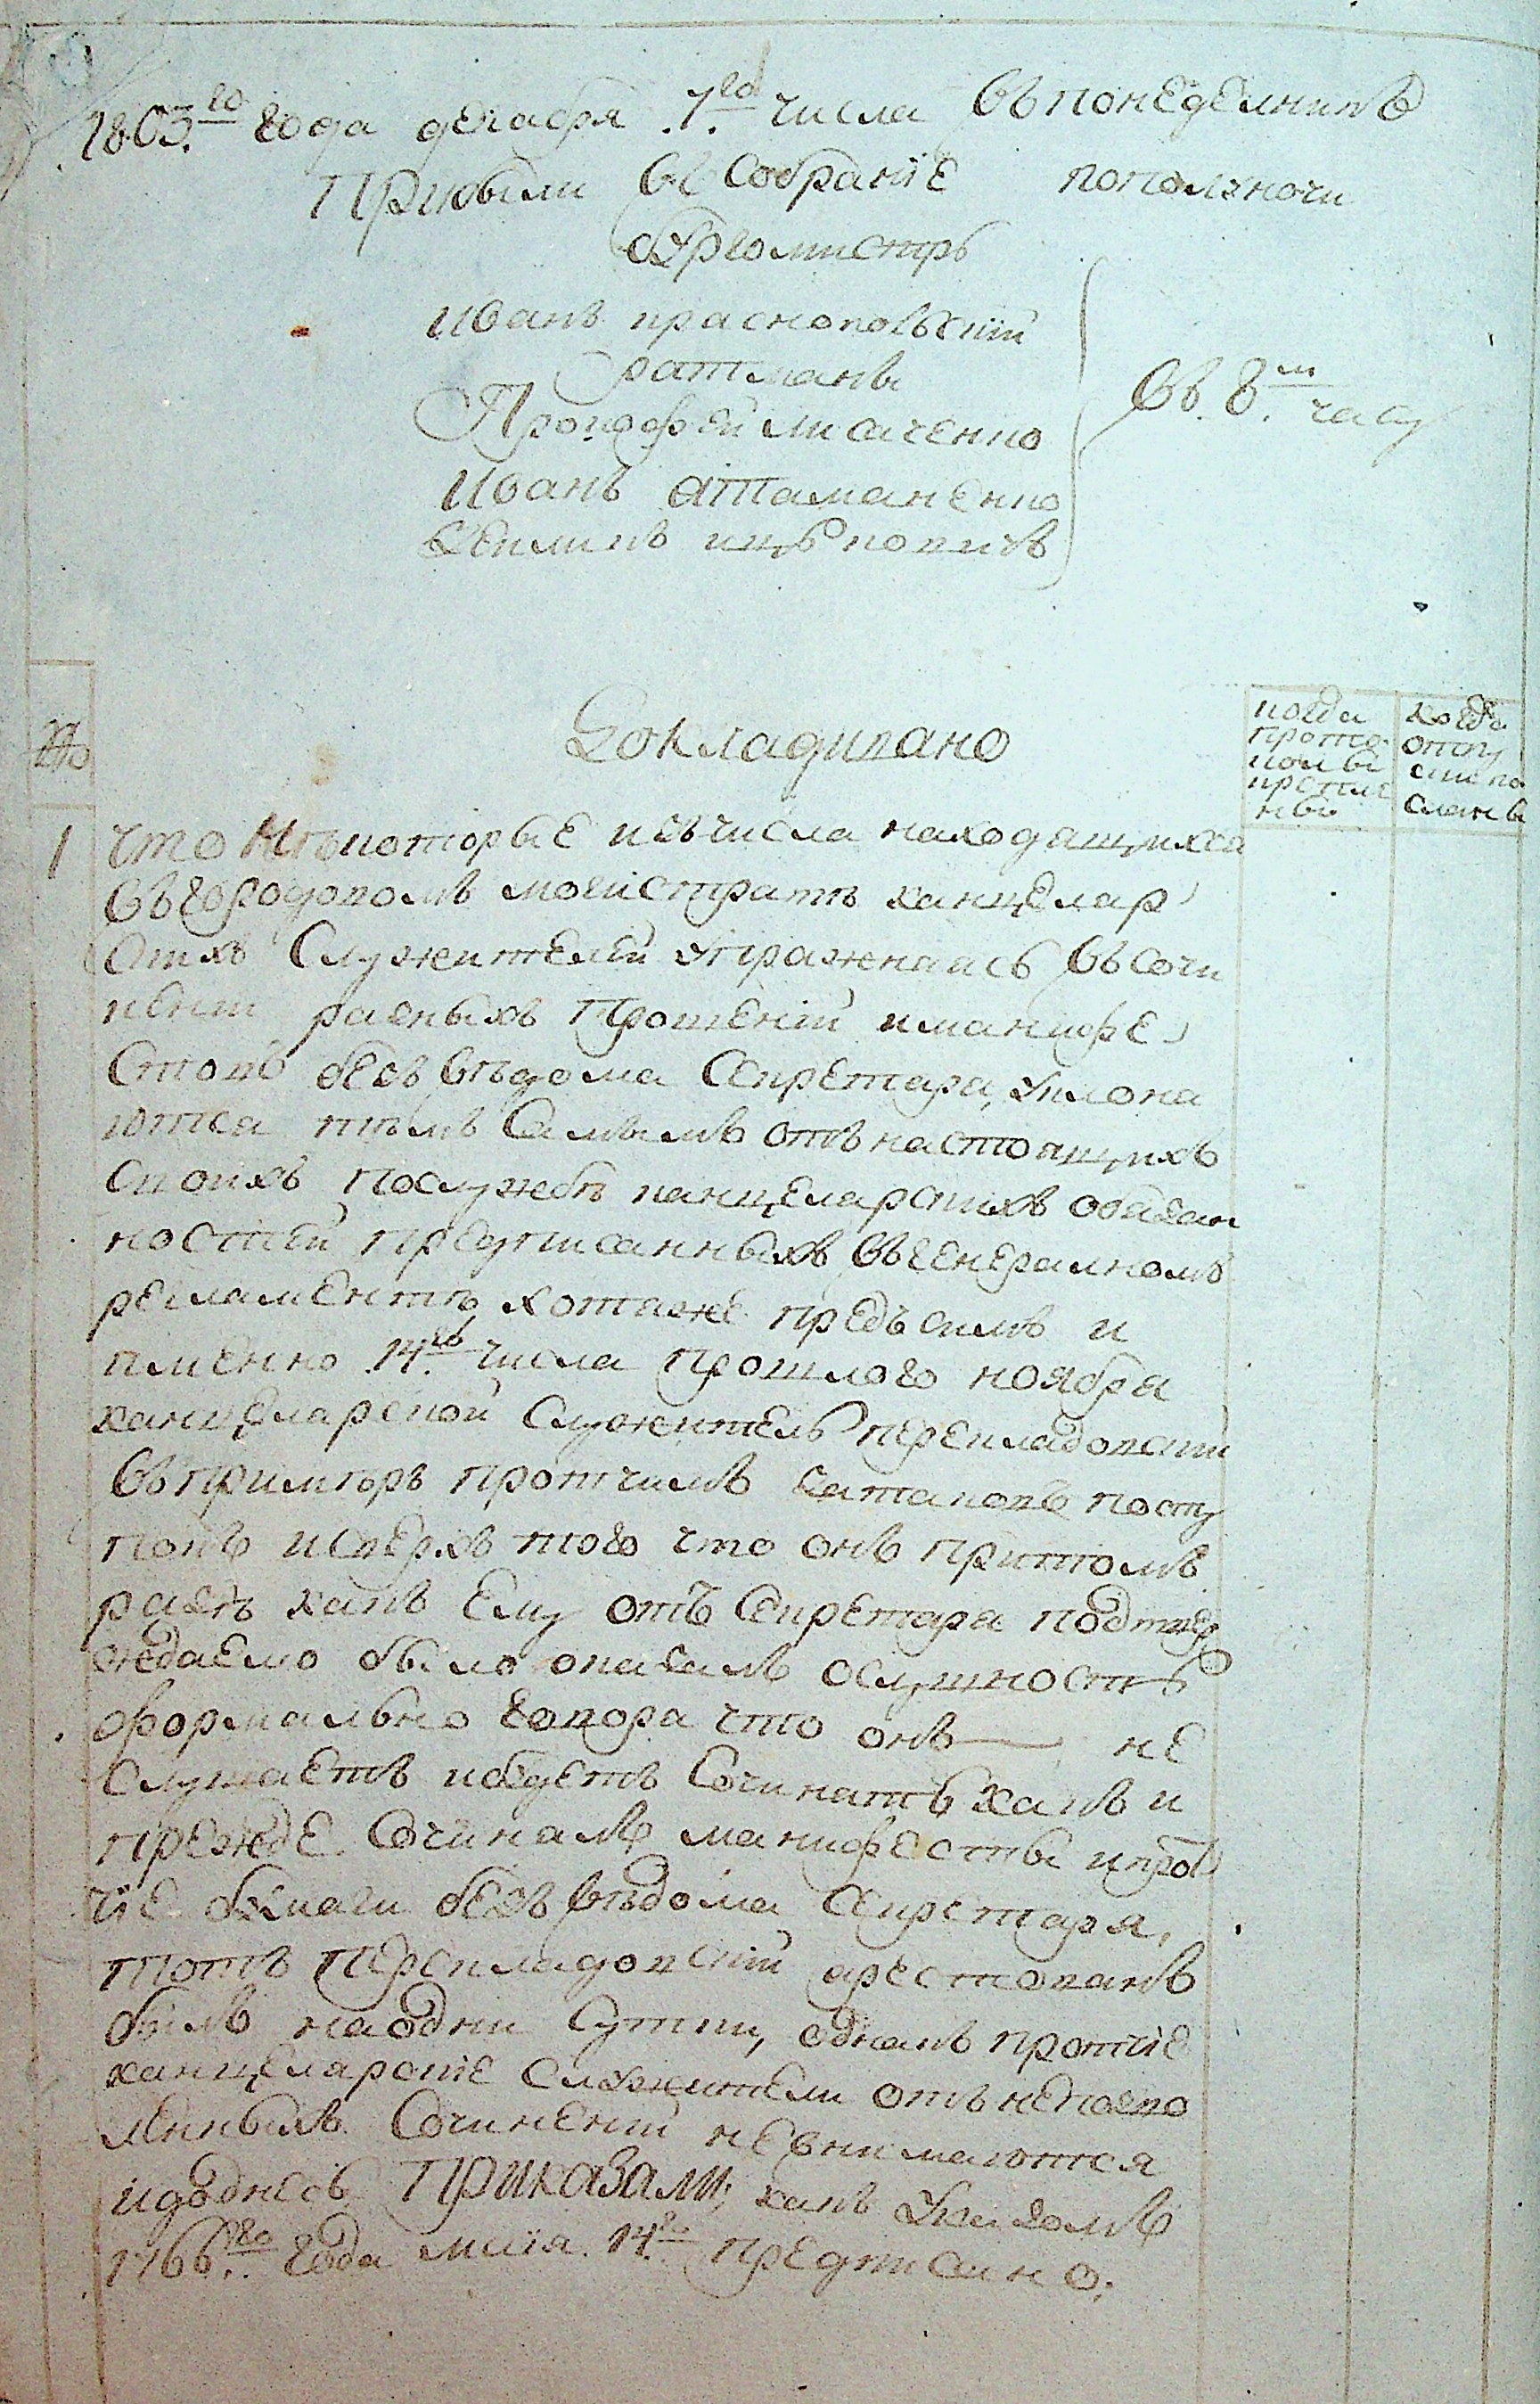 1803.го года декабря .7.го числа въ понеделникъ
Прибыли въ собраніе пополуночи
бургомистръ
иванъ краснопольскій
ратманы
Прокофей лисаченко
въ. 8.м часу
иванъ атаманенко
№
Докладивано
когда прото
колы
крепле
ны
когда
отпу
ски по
сланы
1 что нѣкоторые изъ числа находящихся
въ городовомъ магистратѣ канцеляр
скихъ служителей упражнаясь въ сочи
неніи разныхъ прошеній и манифе
стовъ безъ вѣдома секретара, уклона
ютса тѣмъ самымъ отъ настоящихъ
своихъ послужбѣ канцеларскихъ обязан
ностей предписанныхъ въ генералномъ
регламентѣ, хотяже предъ симъ и
имѣнно .14.го числа прошлого ноября
канцеларской служитель перекладовскій
въ примѣръ протчимъ затаковъ посту
покъ исверхъ того что онъ притомъ
разѣ какъ ему отъ секретара подтвер
ждаемо было оказалъ ослушность
формально говора что онъ — не
слушаетъ ибудетъ сочинать какъ и
прежде сочиналъ манифесты ипрот
чіе бумаги безъ вѣдома секретаря,
тотъ перекладовскій арестованъ
былъ наодни сутки, однакъ протчіе
канцеларскіе служители отъ непозво
ленныхъ сочиненій невнимаются
идоднесь, ПРИКАЗАЛИ; какъ указомъ
1766.го года маія. 14.го предписано;